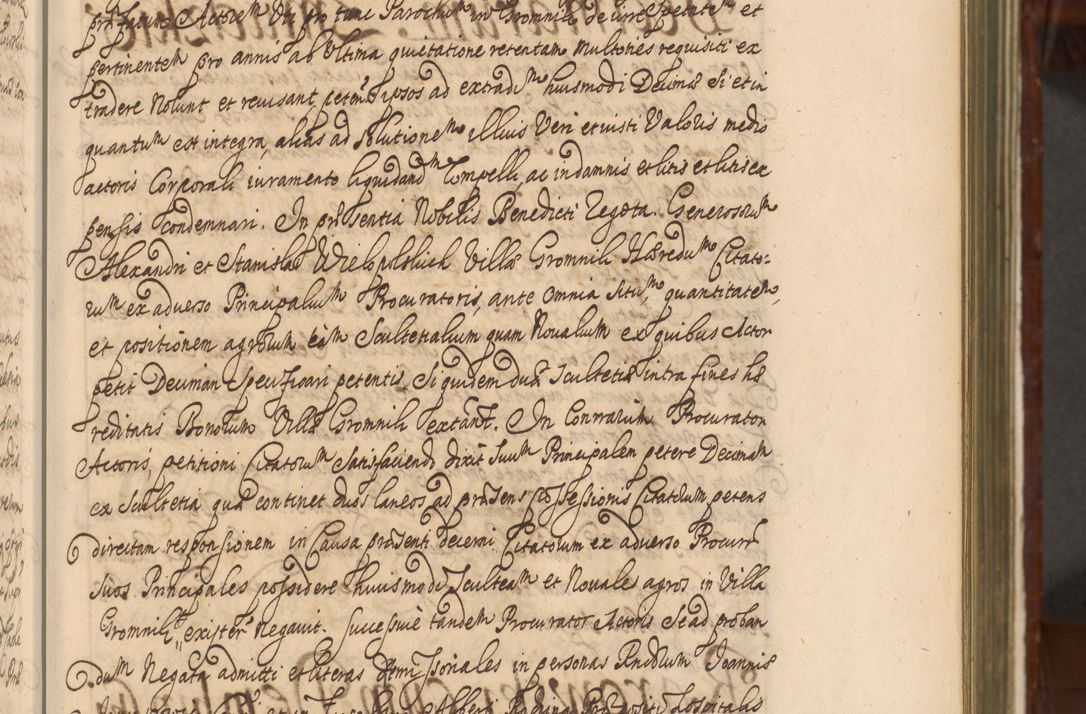 præfatum Actorem Uti pro tunc Parochum in Gromnik de iure spectantem et
pertinentem pro annis ab Ultima quietatione retentam multoties requisiti ex
tradere Nolunt et recusant, petens ipsos ad extradm huiusmodi Decimæ si et in
quantum est integra, alias ad solutionem illius Veri et iusti Valoris medio
actoris Corporali iuramento liquidandm Compelli, ac in damnis et litis et litis ex
pensis condemnari. In præsentia Nobilis Benedicti Zegota. Generosorum
Alexandri et Stanislai Wielopolskich Villæ Gromnik Hæredum Citato:
rum ex adverso Principalium Procuratoris, ante omnia situm, quantitatem,
et positionem agrorum tam Scultetialium quam Novalium ex quibus Actor
petit Decimam specificari petentis, siquidem duæ Scultetiæ intra fines hæ
reditatis Bonorum Villæ Gromnik extant. In Contrarium Procurator
Actoris, petitioni Citatorum satisfaciendo dixit suum Principalem petere Decimam
ex scultetia quæ continet duos laneos ad præsens possessionis Citatorum petens
directam responsionem in Causa præsenti decerni. Citatorum ex adverso Procurr
suos Principales possidere huiusmodi Sculteam et Novales agros in Villa
Gromnik existen negavit. Successive tandem Procurator Actoris se ad proban
dum Negata admitti et literas dimissoriales in personas Rndorum Joannis